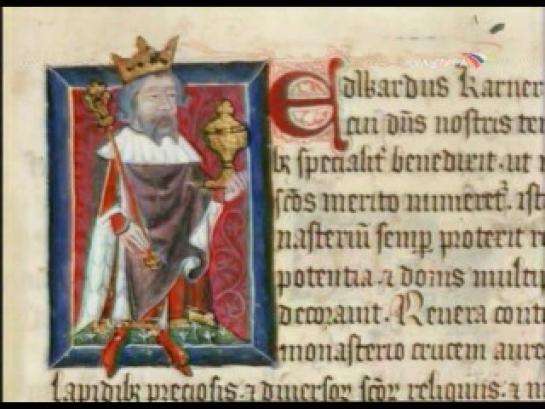 КУЛЬТУРА
Edwardus Karner
cui dns nostris tem
bz specialit benedixit. ut
scos merito numeret. ist
nasteriu semp protexit
potentia. & donis multip
decorauit. Reuera cont
monasterio crucem aure
lapidibz preciosis. & diuersor scor reliquiis. &